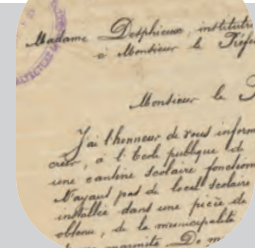 Madame Desphieux, institutr
à Monsieur le Préfe
Monsieur le
J'ai l'honneur de vous inform
créer, à l'École publique de
une cantine scolaire fonction
N'ayant pas de local scolaire
installée dans une pièce de
obtenu, de la municipalité
marmite De m